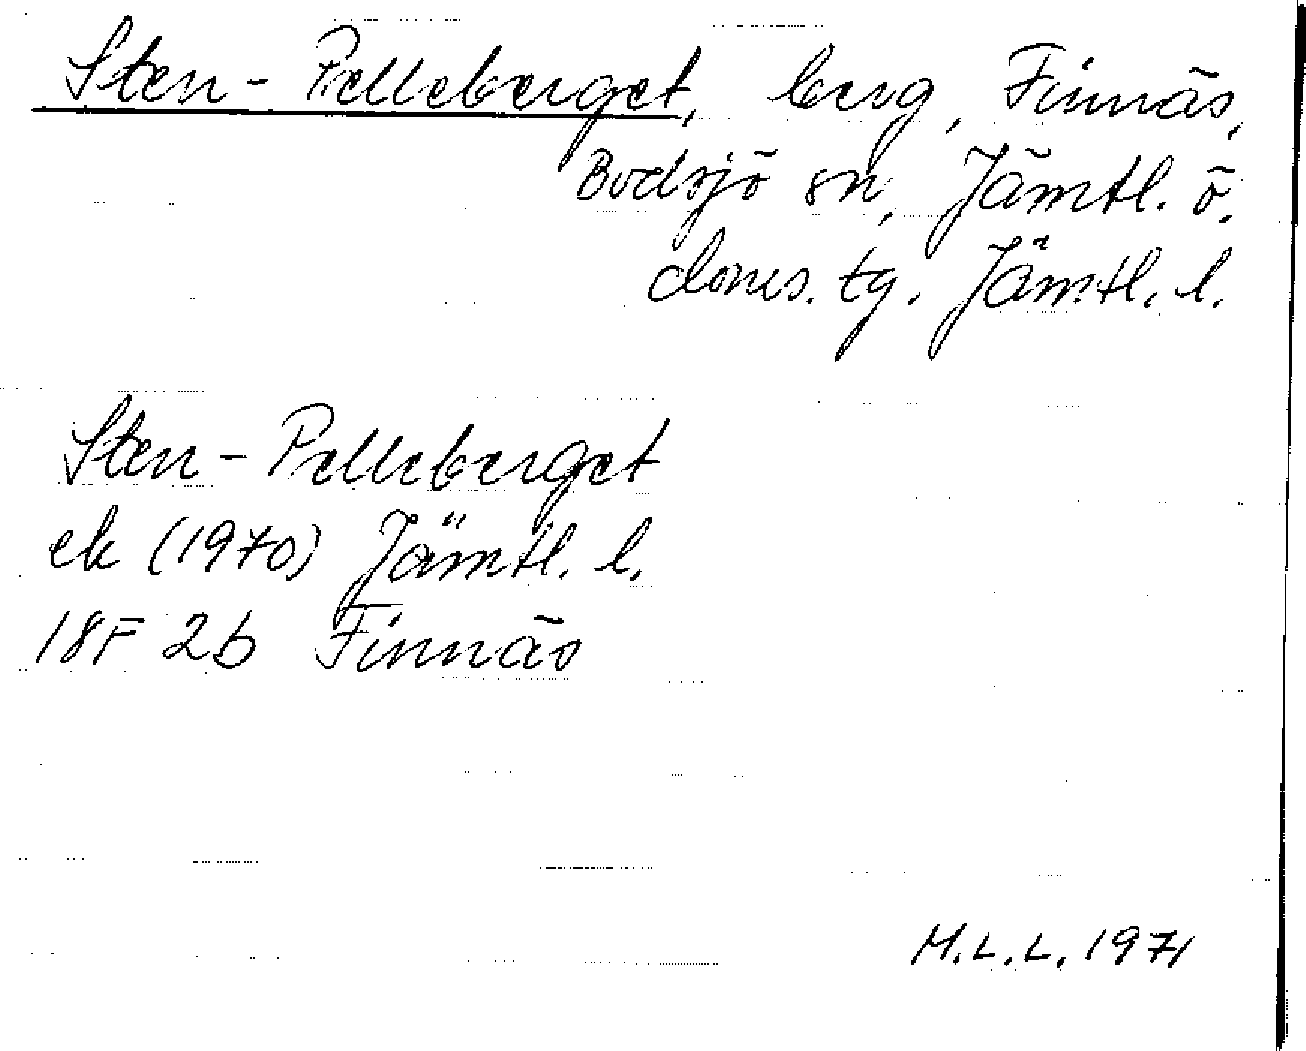 Sten-Pelleberget, berg, Finnäs,
Bodsjö sn, Jämtl. ö.
doms. tg. Jämtl. l.
Sten-Pelleberget
ek (1970) Jämtl. l.
18F 2b Finnäs
M.L.L. 1971